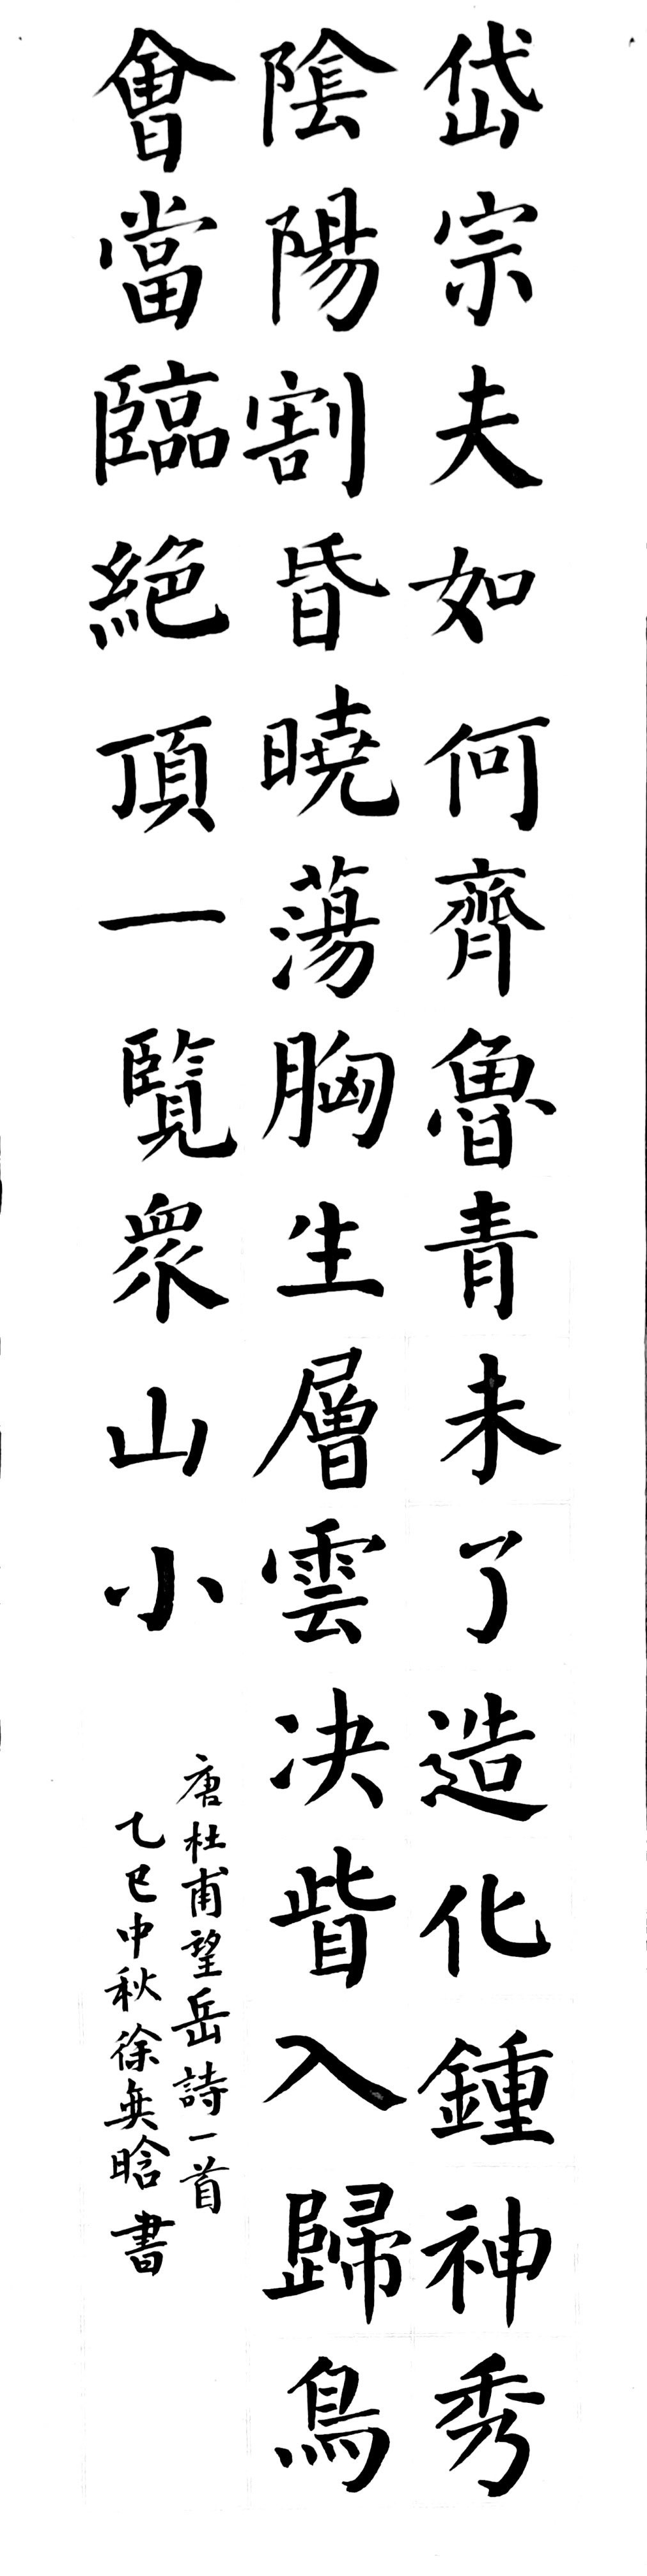 岱宗夫如何齊魯青未了造化鍾神秀
陰陽割昏曉蕩胸生層雲决眥入歸鳥
會當臨絕頂一覽衆山小
唐杜甫望岳詩一首
乙巳中秋徐奕晗書